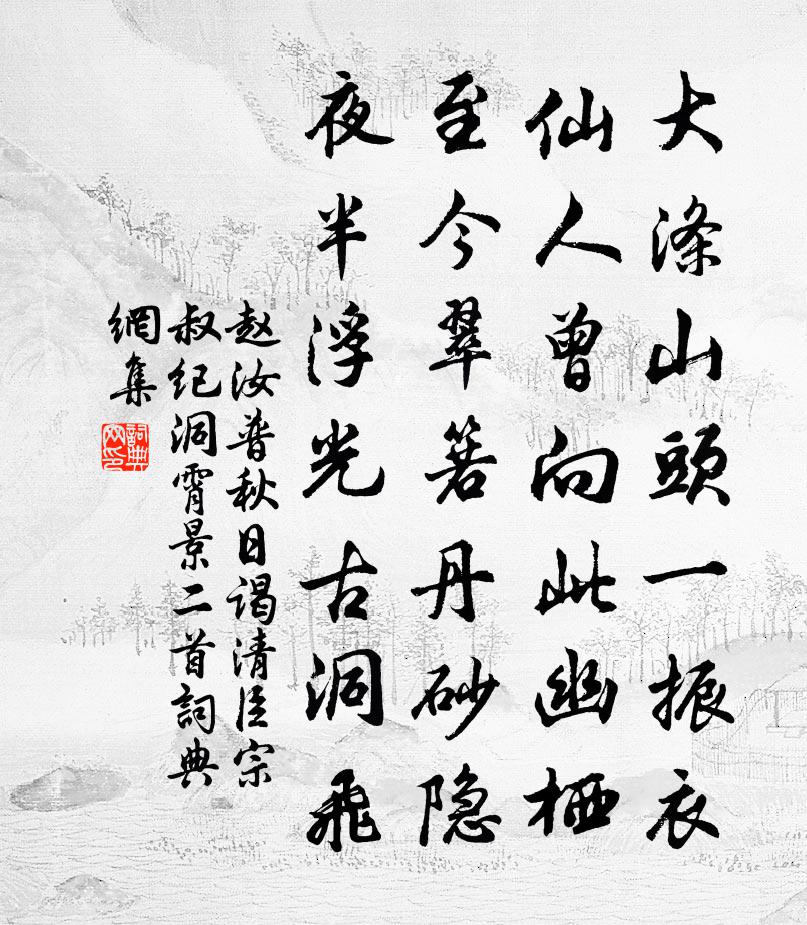 大涤山頭一振衣
仙人曾向此幽栖
至今翠箬丹砂隐
夜半浮光古洞飛
赵汝普秋日谒清臣宗
叔纪洞霄景二首詞典
網集
詞典
网